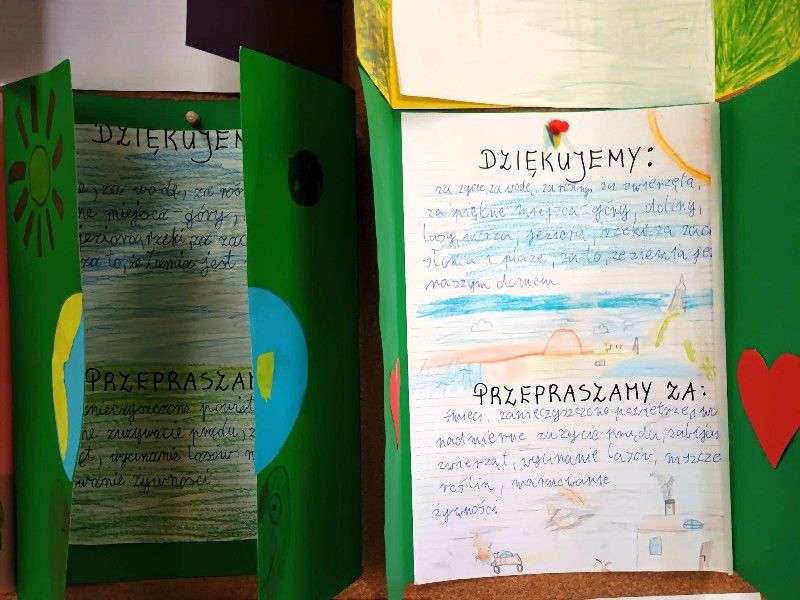 DZIĘKUJEM
za wodę, za roś
ne miejsca - góry,
jeziora, rzeki, za zac
za to, że Ziemia jest
PRZEPRASZAM
nieczyszczone powiet
ne zużywacie prądu, z
ąt, wycinanie lasów n
wanie żywności.
DZIĘKUJEMY:
za życie, za wodę, za rośliny, za zwierzęta,
za piękne miejsca - góry, doliny,
lasy, morza, jeziora, rzeki, za zac
słońca i plaże, za to, że ziemia je
naszym domem
PRZEPRASZAMY ZA:
śmieci, zanieczyszczone powietrze, wo
nadmierne zużycie prądu, zabijan
zwierząt, wycinanie lasów, niszcze
roślin, marnowanie
żywności.